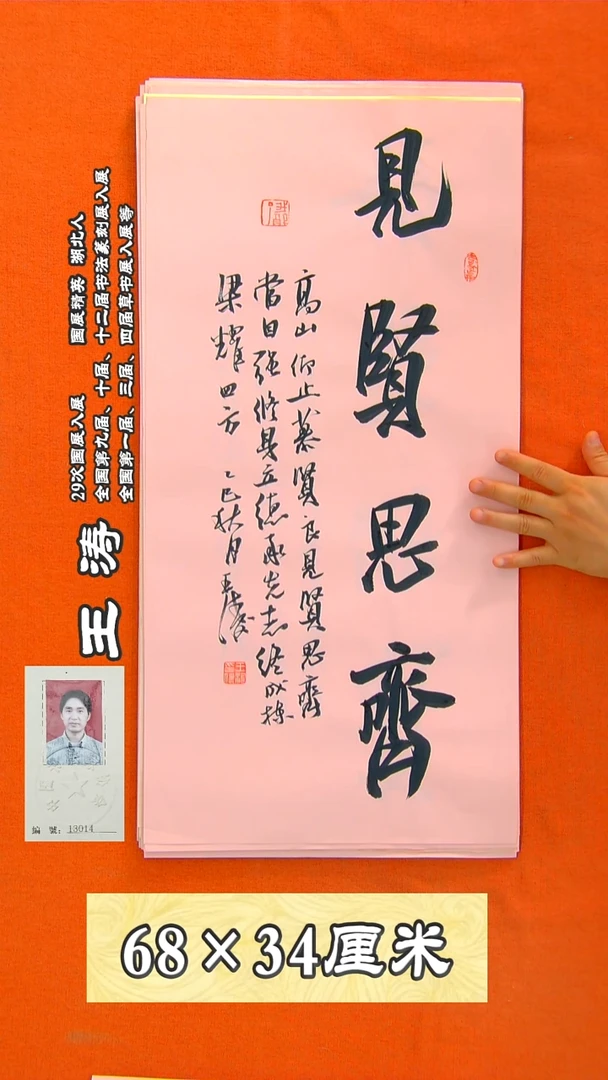 見賢思齊
高山仰止慕賢良見賢思齊
當日強修身立德承先志終成棟
梁耀四方 乙巳秋月王濤
29次国展入展 国展精英 湖北人
全国第九届、十届、十二届书法篆刻展入展
全国第一届、三届、四届草书展入展等
王涛
編號：13014
68×34厘米